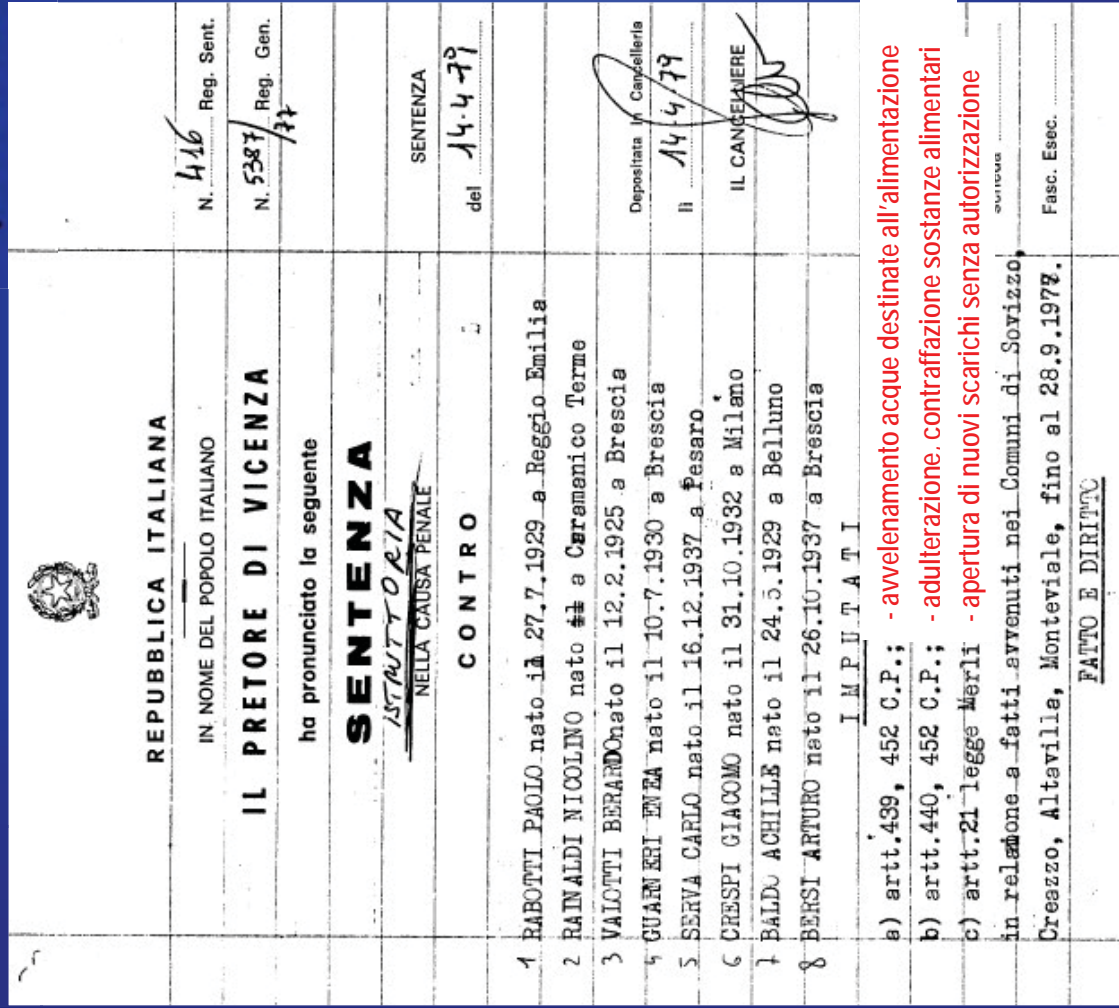 REPUBBLICA ITALIANA
IN NOME DEL POPOLO ITALIANO
IL PRETORE DI VICENZA
ha pronunciato la seguente
SENTENZA
ISTRUTTORIA
NELLA CAUSA PENALE
CONTRO
1 RABOTTI PAOLO nato il 27.7.1929 a Reggio Emilia
2 RAINALDI NICOLINO nato a Caramanico Terme
3 VALOTTI BERARDO nato il 12.2.1925 a Brescia
4 GUARNERI ENEA nato il 10.7.1930 a Brescia
5 SERVA CARLO nato il 16.12.1937 a Pesaro
6 CRESPI GIACOMO nato il 31.10.1932 a Milano
7 BALDO ACHILLE nato il 24.5.1929 a Belluno
8 BERSI ARTURO nato il 26.10.1937 a Brescia
IMPUTATI
a) artt.439, 452 C.P.; - avvelenamento acque destinate all'alimentazione
b) artt.440, 452 C.P.; - adulterazione. contraffazione sostanze alimentari
c) artt.21 legge Merli - apertura di nuovi scarichi senza autorizzazione
in relazione a fatti avvenuti nei Comuni di Sovizzo,
Creazzo, Altavilla, Monteviale, fino al 28.9.1977.
FATTO E DIRITTO
N. 416 Reg. Sent.
N. 5387/77 Reg. Gen.
SENTENZA
del 14.4.79
Depositata in Cancelleria
lì 14.4.79
IL CANCELLIERE
Fasc. Esec.